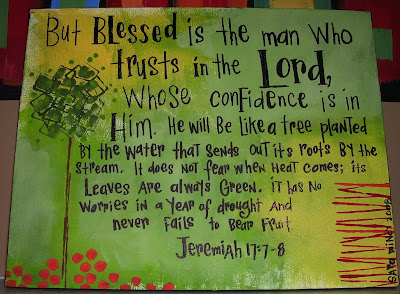 But Blessed is the man who
trusts in the Lord,
whose confidence is in
Him. He will be like a tree planted
by the water that sends out its roots by the
stream. It does not fear when heat comes; its
leaves are always green. It has no
worries in a year of drought and
never fails to bear fruit.
Jeremiah 17:7-8